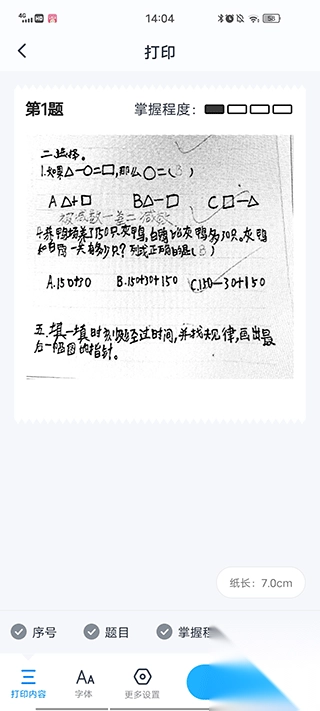 4G HD 14:04 58
打印
第1题 掌握程度：
二.选择。
1.如果△-○=□,那么○=(B)
A △+□ B△-□ C □-△
被减数-差=减数
4.养鸭场养了150只灰鸭,白鸭比灰鸭多30只。灰鸭
和白鸭一共有多少只?列式正确的是(B)
A.150+30 B.150+30+150 C.150-30+150
五.填一填时刻经过时间,并找规律,画出最
后一幅图的指针。
纸长：7.0cm
序号 题目 掌握程
打印内容 字体 更多设置